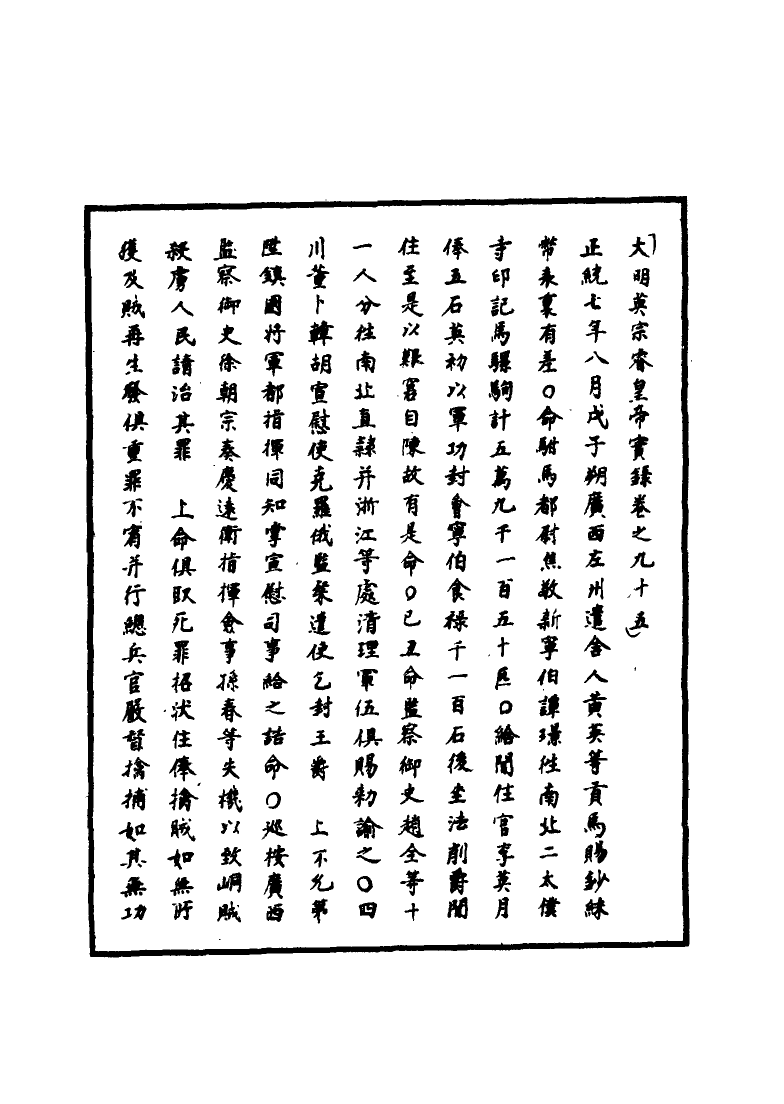 大明英宗睿皇帝實錄卷之九十五
正統七年八月戊子朔廣西左州遣舍人黃英等貢馬賜鈔綵
幣表裏有差○命駙馬都尉焦敬新寧伯譚璟徃南北二太僕
寺印記馬騾駒計五萬九千一百五十匹○給閒住官李英月
俸五石英初以軍功封會寧伯食祿千一百石後坐法削爵閒
住至是以艱窘自陳故有是命○己丑命監察御史趙全等十
一人分往南北直隸并浙江等處清理軍伍俱賜勑諭之○四
川董卜韓胡宣慰使克羅俄監粲遣使乞封王爵　上不允第
陞鎮國將軍都指揮同知掌宣慰司事給之誥命○巡按廣西
監察御史徐朝宗奏慶遠衛指揮僉事孫春等失機以致峒賊
殺虜人民請治其罪　上命俱取死罪招狀住俸擒賊如無所
獲及賊再生發俱重罪不宥并行總兵官嚴督擒捕如其無功